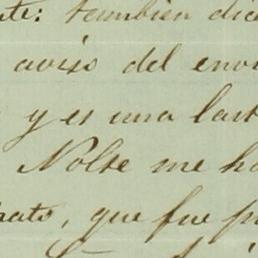 nte: tambien dic
aviso del env
y es una last
Nolte me ha
rato, que fue p